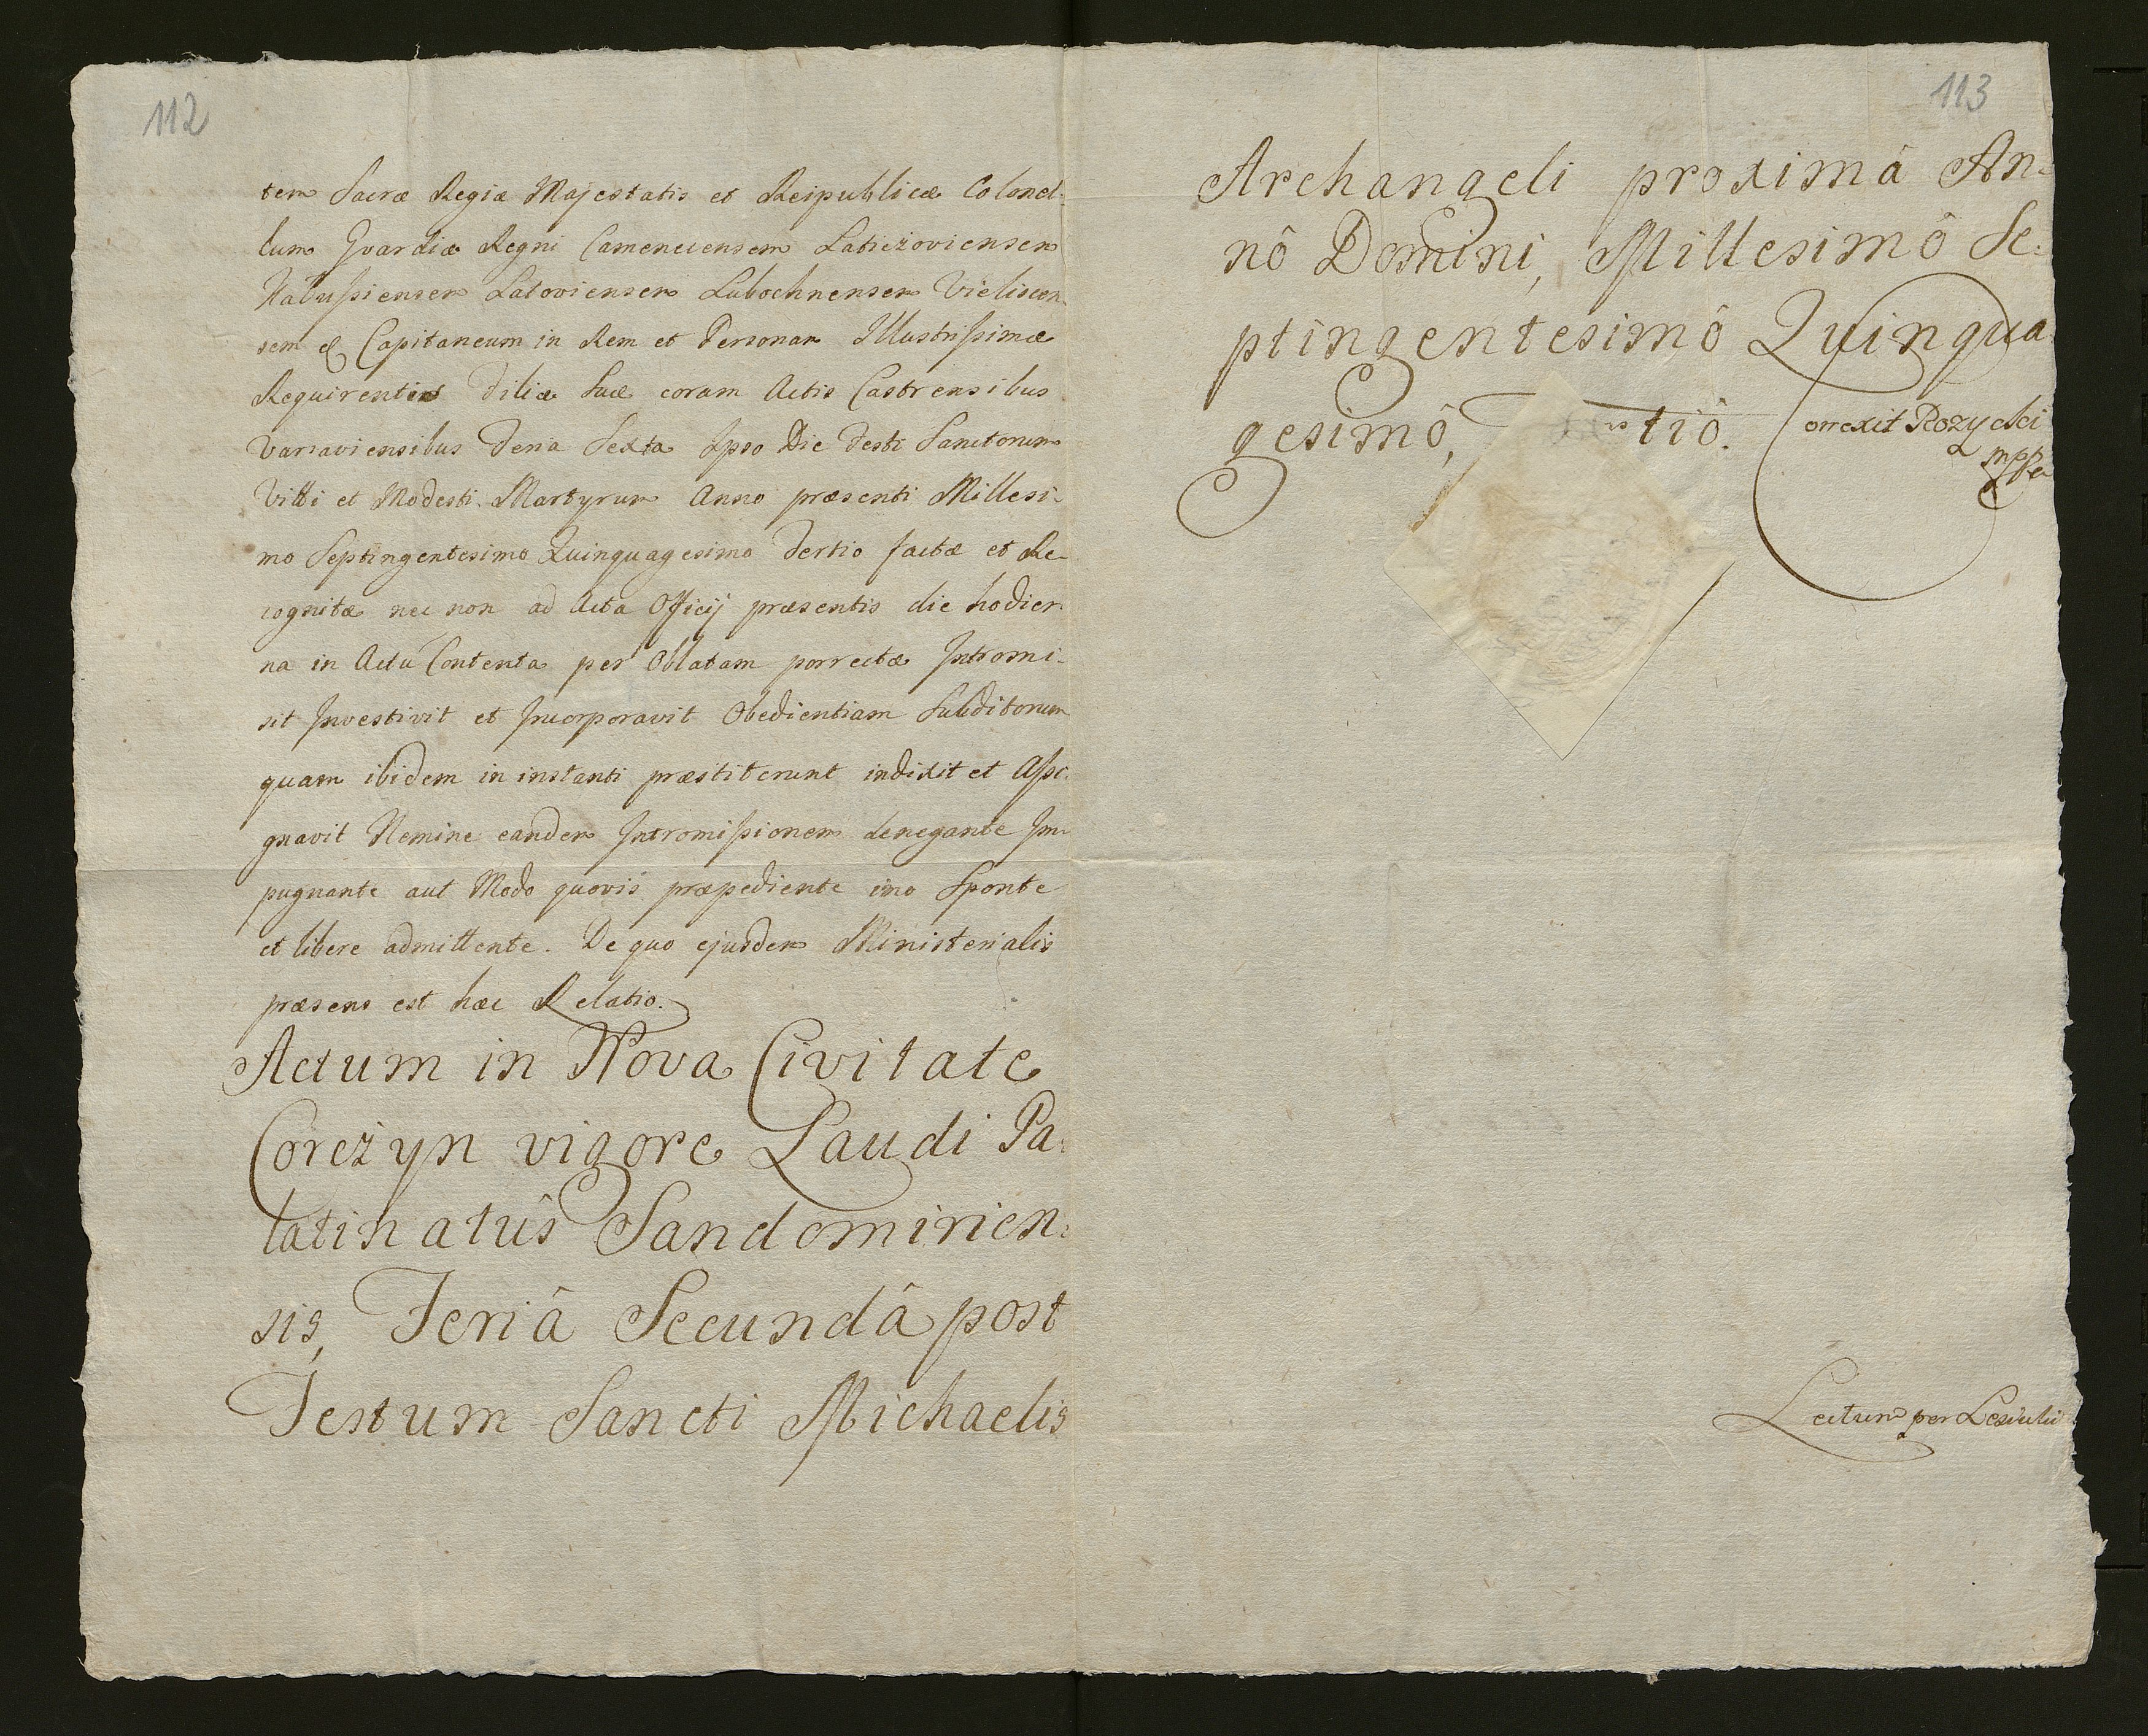 112
tem Sacræ Regiæ Majestatis et Reipublicæ Colonel-
lum Gvardiæ Regni Camenecensem Laticzoviensem
Latoviensem Lubochnensem Vieliscen-
sem & Capitaneum in Rem et Personam Illustrissimæ
Requirentis Filiæ Suæ coram Actis Castrensibus
Varsaviensibus Feria Sexta Ipso Die Festi Sanctorum
Vitti et Modesti Martyrum Anno præsenti Millesi-
mo Septingentesimo Quinquagesimo Tertio factæ et Re-
cognitæ nec non ad Acta Officij præsentis die hodier-
na in Actu Contenta per Oblatam porrectæ Intromi-
sit Investivit et Incorporavit Obedientiam Subditorum
quam ibidem in instanti præstiterunt indixit et Assi-
gnavit Nemine eandem Intromissionem denegante Im-
pugnante aut Modo quovis præpediente imo Sponte
et libere admittente. De quo ejusdem Ministerialis
præsens est hæc Relatio.
Actum in Nova Civitate
Corczyn vigore Laudi Pa-
latinatûs Sandomirien-
sis, Feriâ Secundâ post
Festum Sancti Michaelis
113
Archangeli proximâ An-
nô Domini, Millesimô Se-
ptingentesimô Quinqua
gesimô, tiô.
Correxit Rozycki
mpp
Lectum per